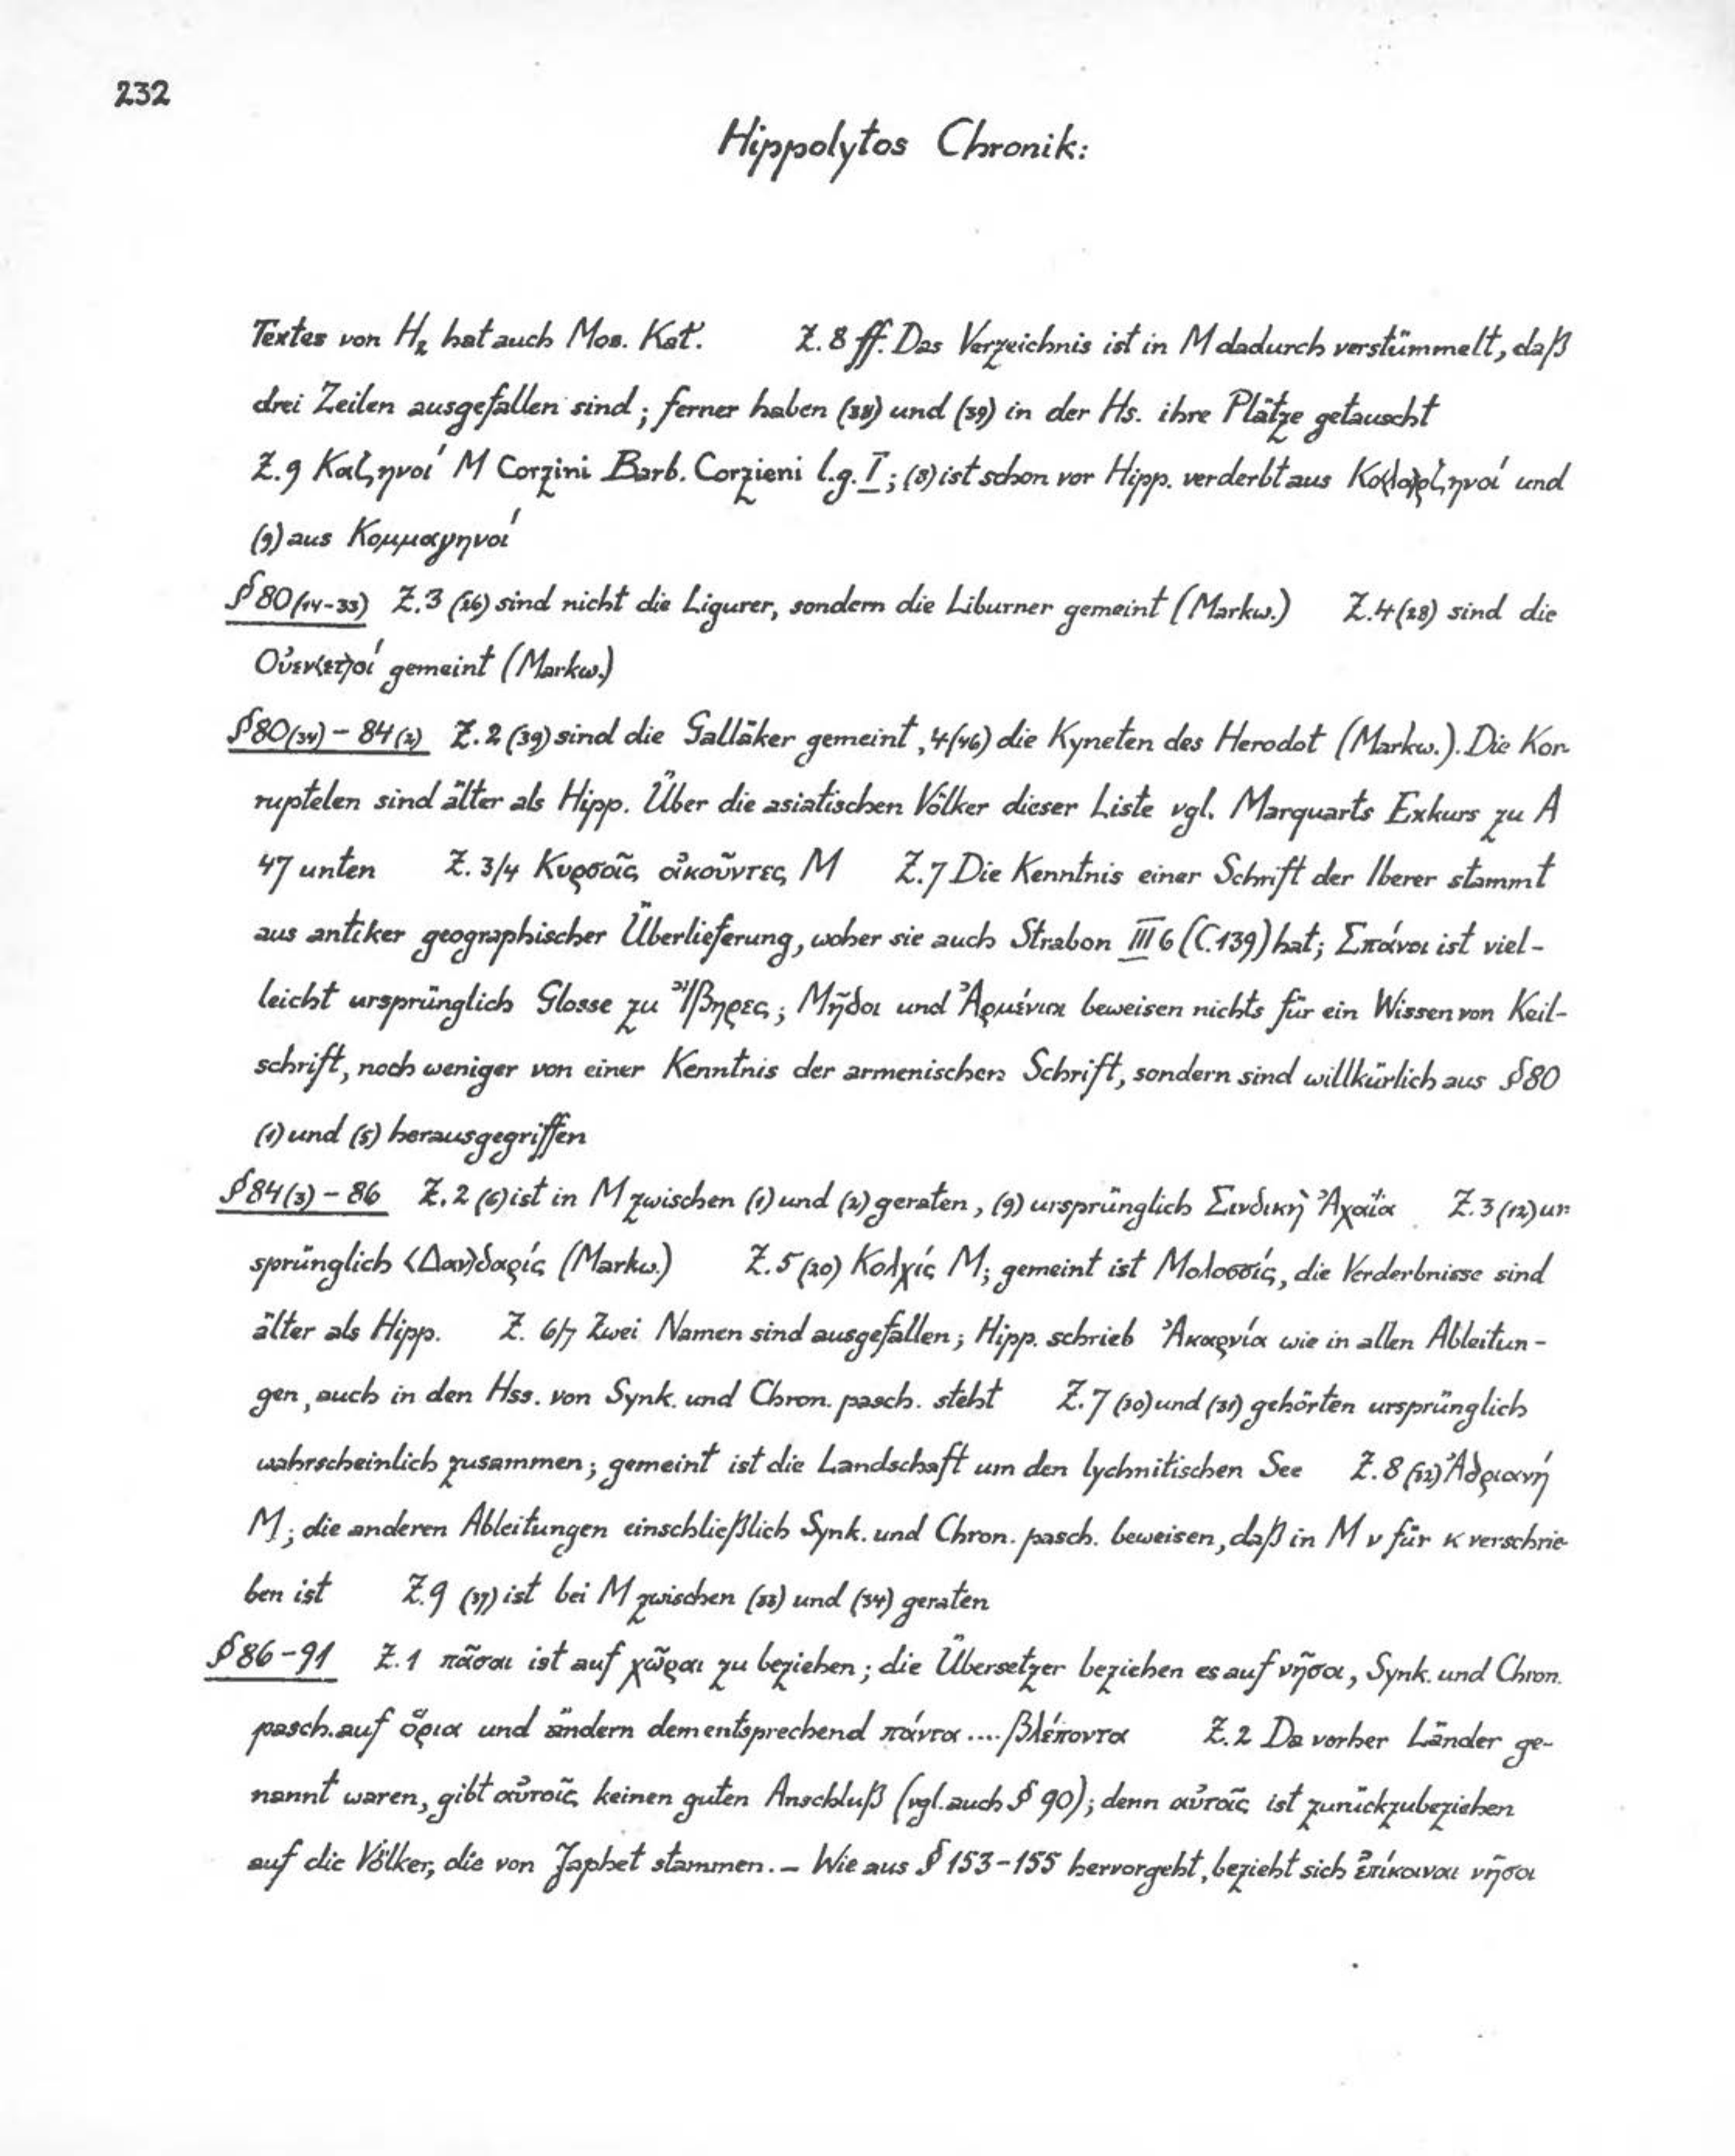 232
Hippolytos Chronik:
Textes von H₂ hat auch Mos. Kat'. Z. 8 ff. Das Verzeichnis ist in M dadurch verstümmelt, daß
drei Zeilen ausgefallen sind; ferner haben (38) und (39) in der Hs. ihre Plätze getauscht
Z. 9 Καζηνοί M Corzini Barb. Corzieni l.g. I; (8) ist schon vor Hipp. verderbt aus und
(9) aus Κομμαγηνοί
§ 80 (14-33) Z. 3 (26) sind nicht die Ligurer, sondern die Liburner gemeint (Markw.) Z. 4 (28) sind die
Οὐεν<ετ>οί gemeint (Markw.)
§ 80 (34) – 84 (2) Z. 2 (39) sind die Galläker gemeint, 4 (46) die Kyneten des Herodot (Markw.). Die Kor-
ruptelen sind älter als Hipp. Über die asiatischen Völker dieser Liste vgl. Marquarts Exkurs zu A
47 unten Z. 3/4 Κυρσοῖς οἰκοῦντες M Z. 7 Die Kenntnis einer Schrift der Iberer stammt
aus antiker geographischer Überlieferung, woher sie auch Strabon III 6 (C. 139) hat; Σπάνοι ist viel-
leicht ursprünglich Glosse zu Ἴβηρες; Μῆδοι und Ἀρμένιοι beweisen nichts für ein Wissen von Keil-
schrift, noch weniger von einer Kenntnis der armenischen Schrift, sondern sind willkürlich aus § 80
(1) und (5) herausgegriffen
§ 84 (3) – 86 Z. 2 (6) ist in M zwischen (1) und (2) geraten, (9) ursprünglich Σινδικὴ Ἀχαΐα Z. 3 (12) ur-
sprünglich <Δαν>δαρίς (Markw.) Z. 5 (20) Κολχίς M; gemeint ist Μολοσσίς, die Verderbnisse sind
älter als Hipp. Z. 6/7 Zwei Namen sind ausgefallen; Hipp. schrieb Ἀκαρνία wie in allen Ableitun-
gen, auch in den Hss. von Synk. und Chron. pasch. steht Z. 7 (30) und (31) gehörten ursprünglich
wahrscheinlich zusammen; gemeint ist die Landschaft um den lychnitischen See Z. 8 (32) Ἀδριανή
M; die anderen Ableitungen einschließlich Synk. und Chron. pasch. beweisen, daß in M ν für κ verschrie-
ben ist Z. 9 (37) ist bei M zwischen (33) und (34) geraten
§ 86–91 Z. 1 πᾶσαι ist auf χῶραι zu beziehen; die Übersetzer beziehen es auf νῆσοι, Synk. und Chron.
pasch. auf ὅρια und ändern dementsprechend πάντα .... βλέποντα Z. 2 Da vorher Länder ge-
nannt waren, gibt αὐτοῖς keinen guten Anschluß (vgl. auch § 90); denn αὐτοῖς ist zurückzubeziehen
auf die Völker, die von Japhet stammen. – Wie aus § 153–155 hervorgeht, bezieht sich ἐπίκοινοι νῆσοι